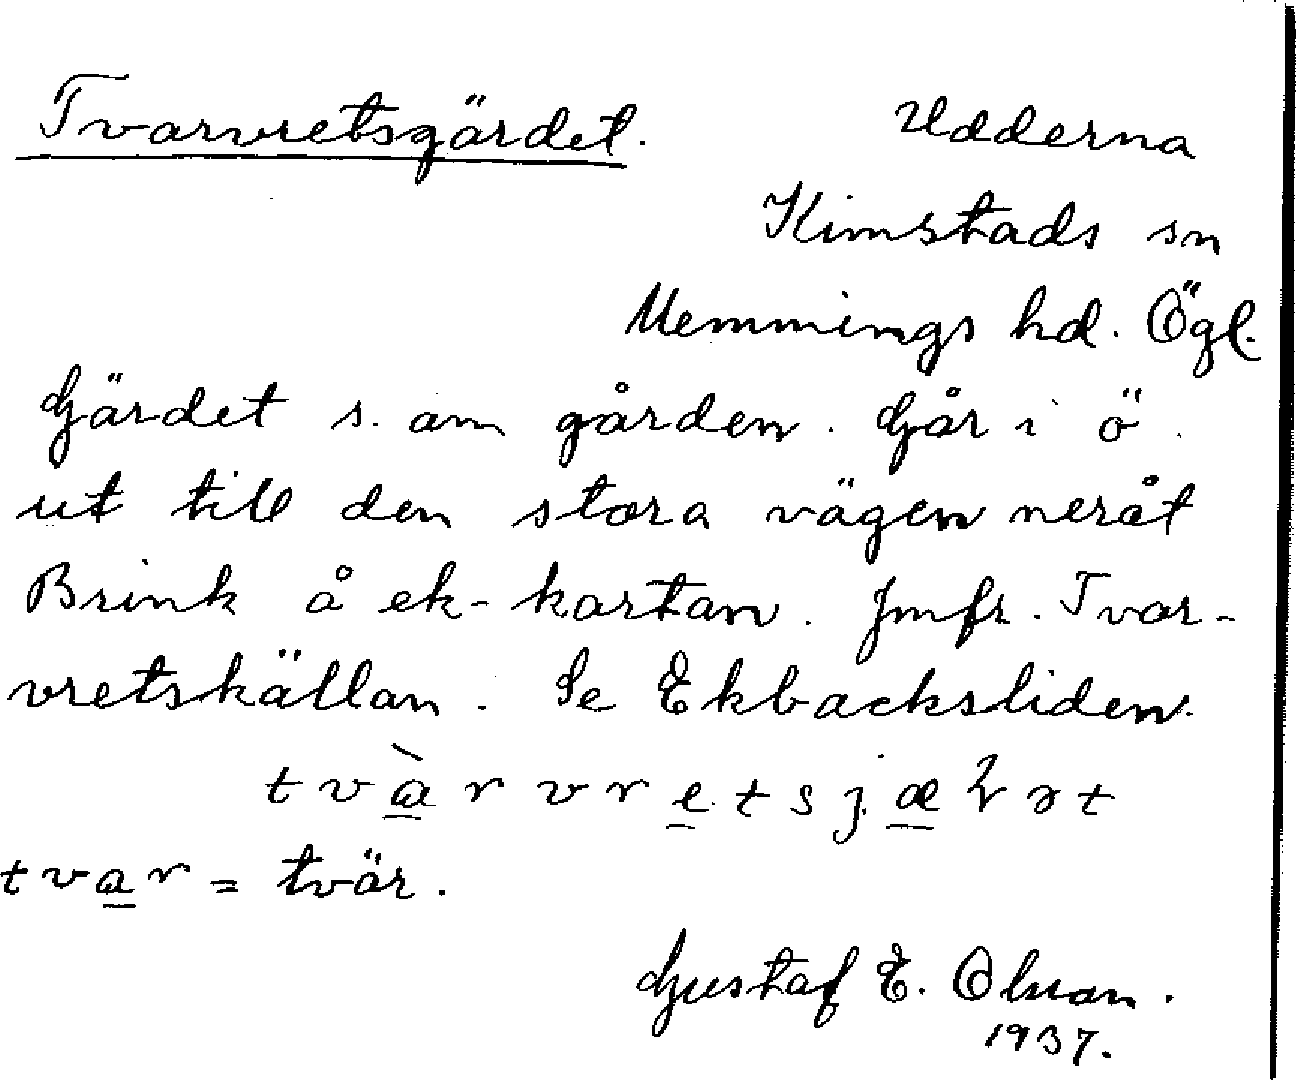 Tvarvretsgärdet. Udderna
Kimstads sn
Memmings hd. Ögl.
Gärdet s. om gården. Går i ö.
ut till den stora vägen neråt
Brink å ek-kartan. Jmfr. Tvar-
vretskällan. Se Ekbacksliden.
tvàrvretsjæ ət
tvar = tvär.
Gustaf E. Olsson.
1937.